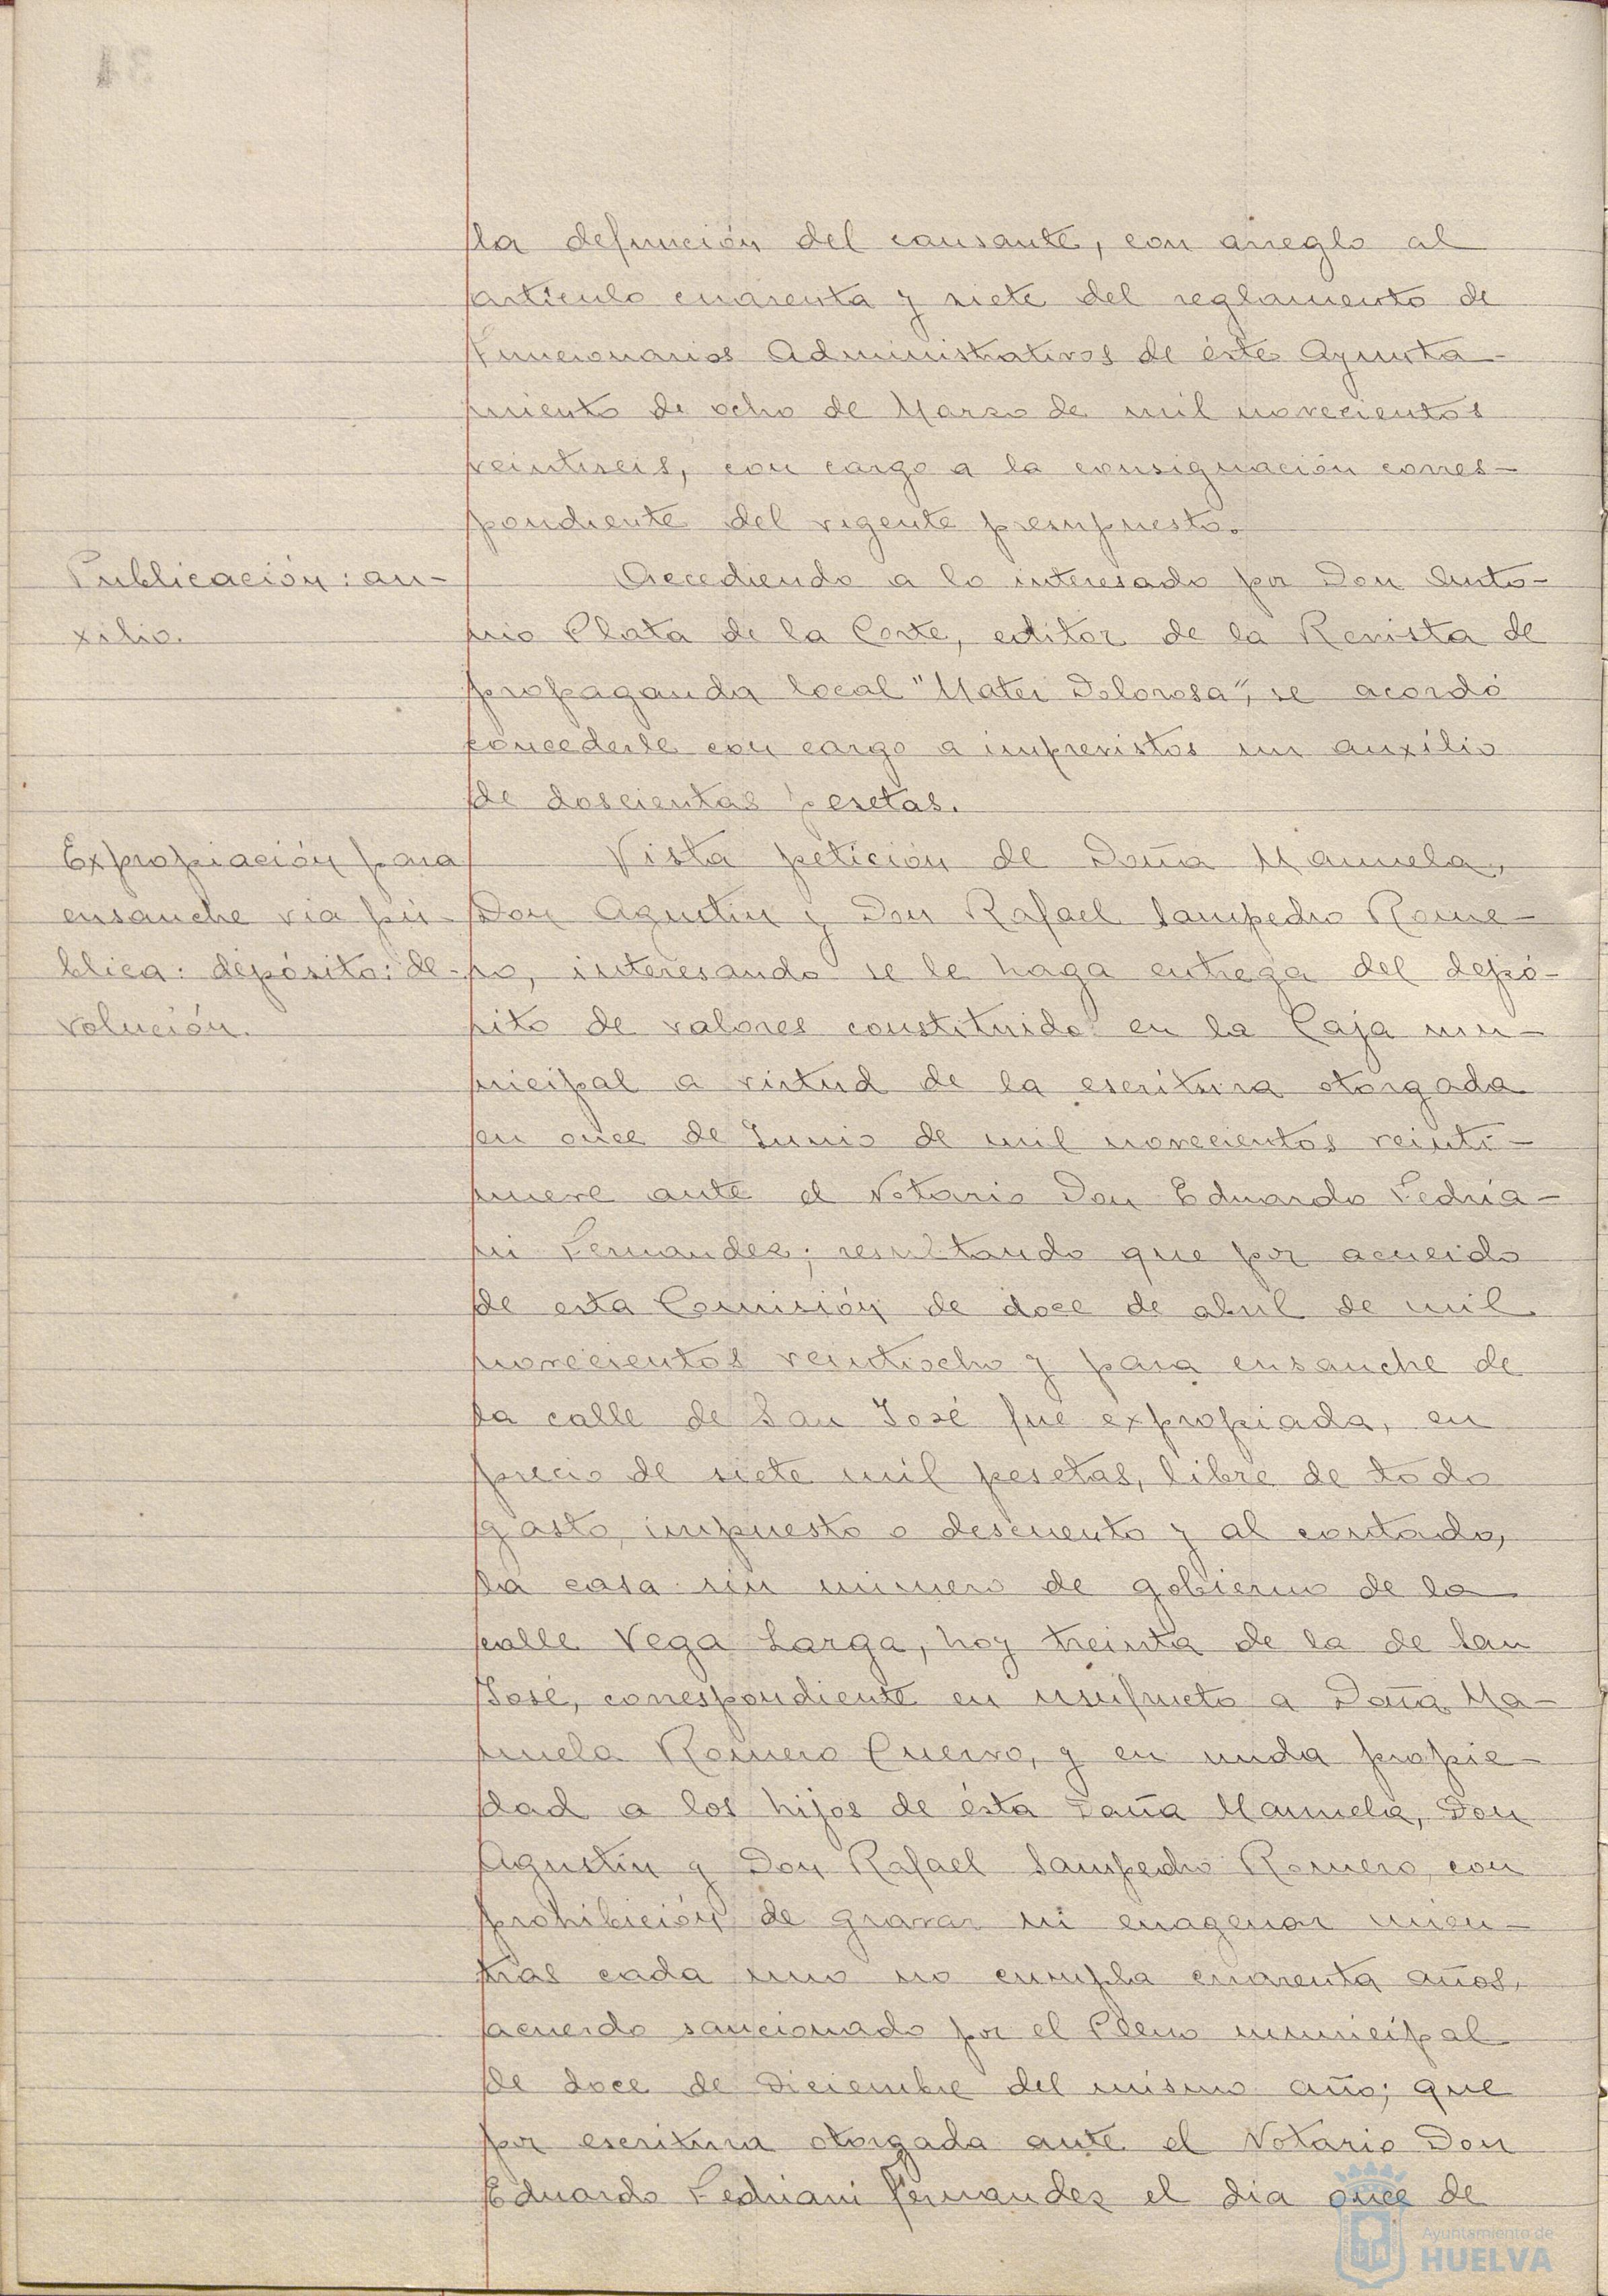 la defunción del causante, con arreglo al
artículo cuarenta y siete del reglamento de
Funcionarios Administrativos de éste Ayunta-
miento de ocho de Marzo de mil novecientos
veintiseis, con cargo a la consignación corres-
pondiente del vigente presupuesto.
Publicación: au-
xilio.
Accediendo a lo interesado por Don Anto-
nio Plata de la Corte, editor de la Revista de
propaganda local "Mater Dolorosa", se acordó
concederle con cargo a imprevistos un auxilio
de doscientas pesetas.
Expropiación para
ensanche via pú-
blica: depósito: de-
volución.
Vista petición de Doña Manuela,
Don Agustín y Don Rafael Sampedro Rome-
ro, interesando se le haga entrega del depó-
sito de valores constituido en la Caja mu-
nicipal a virtud de la escritura otorgada
en once de Junio de mil novecientos veinti-
nueve ante el Notario Don Eduardo Fedria-
ni Fernandez; resultando que por acuerdo
de esta Comisión de doce de abril de mil
novecientos veintiocho y para ensanche de
la calle de San José fué expropiada, en
precio de siete mil pesetas, libre de todo
gasto, impuesto o descuento y al contado,
la casa sin número de gobierno de la
calle Vega Larga, hoy treinta de la de San
José, correspondiente en usufructo a Doña Ma-
nuela Romero Cuervo, y en nuda propie-
dad a los hijos de ésta Doña Manuela, Don
Agustín y Don Rafael Sampedro Romero, con
prohibición de gravar ni enagenar mien-
tras cada uno no cumpla cuarenta años,
acuerdo sancionado por el Pleno municipal
de doce de Diciembre del mismo año; que
por escritura otorgada ante el Notario Don
Eduardo Fedriani Fernandez el dia once de
Ayuntamiento de
HUELVA